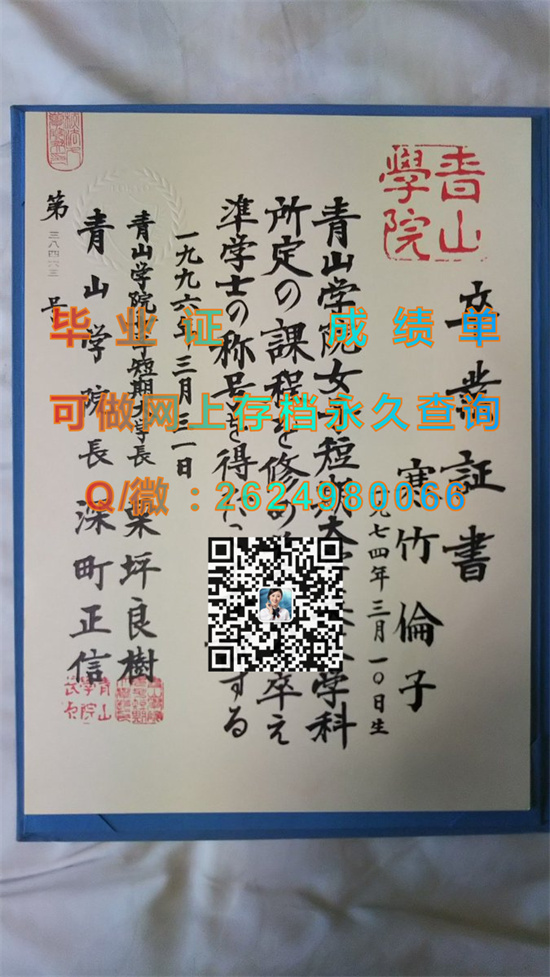 青山
學院
卒業証書
寒竹倫子
一九七四年三月一〇日生
青山学院女子短期大学
学科
所定の課程を修め
卒え
準学士の称号を得
する
一九九六年三月三一日
青山学院女子短期大学長 栗坪良樹
青山学院長 深町正信
第三八四六三号
毕业证 成绩单
可做网上存档永久查询
Q/微:2624980066